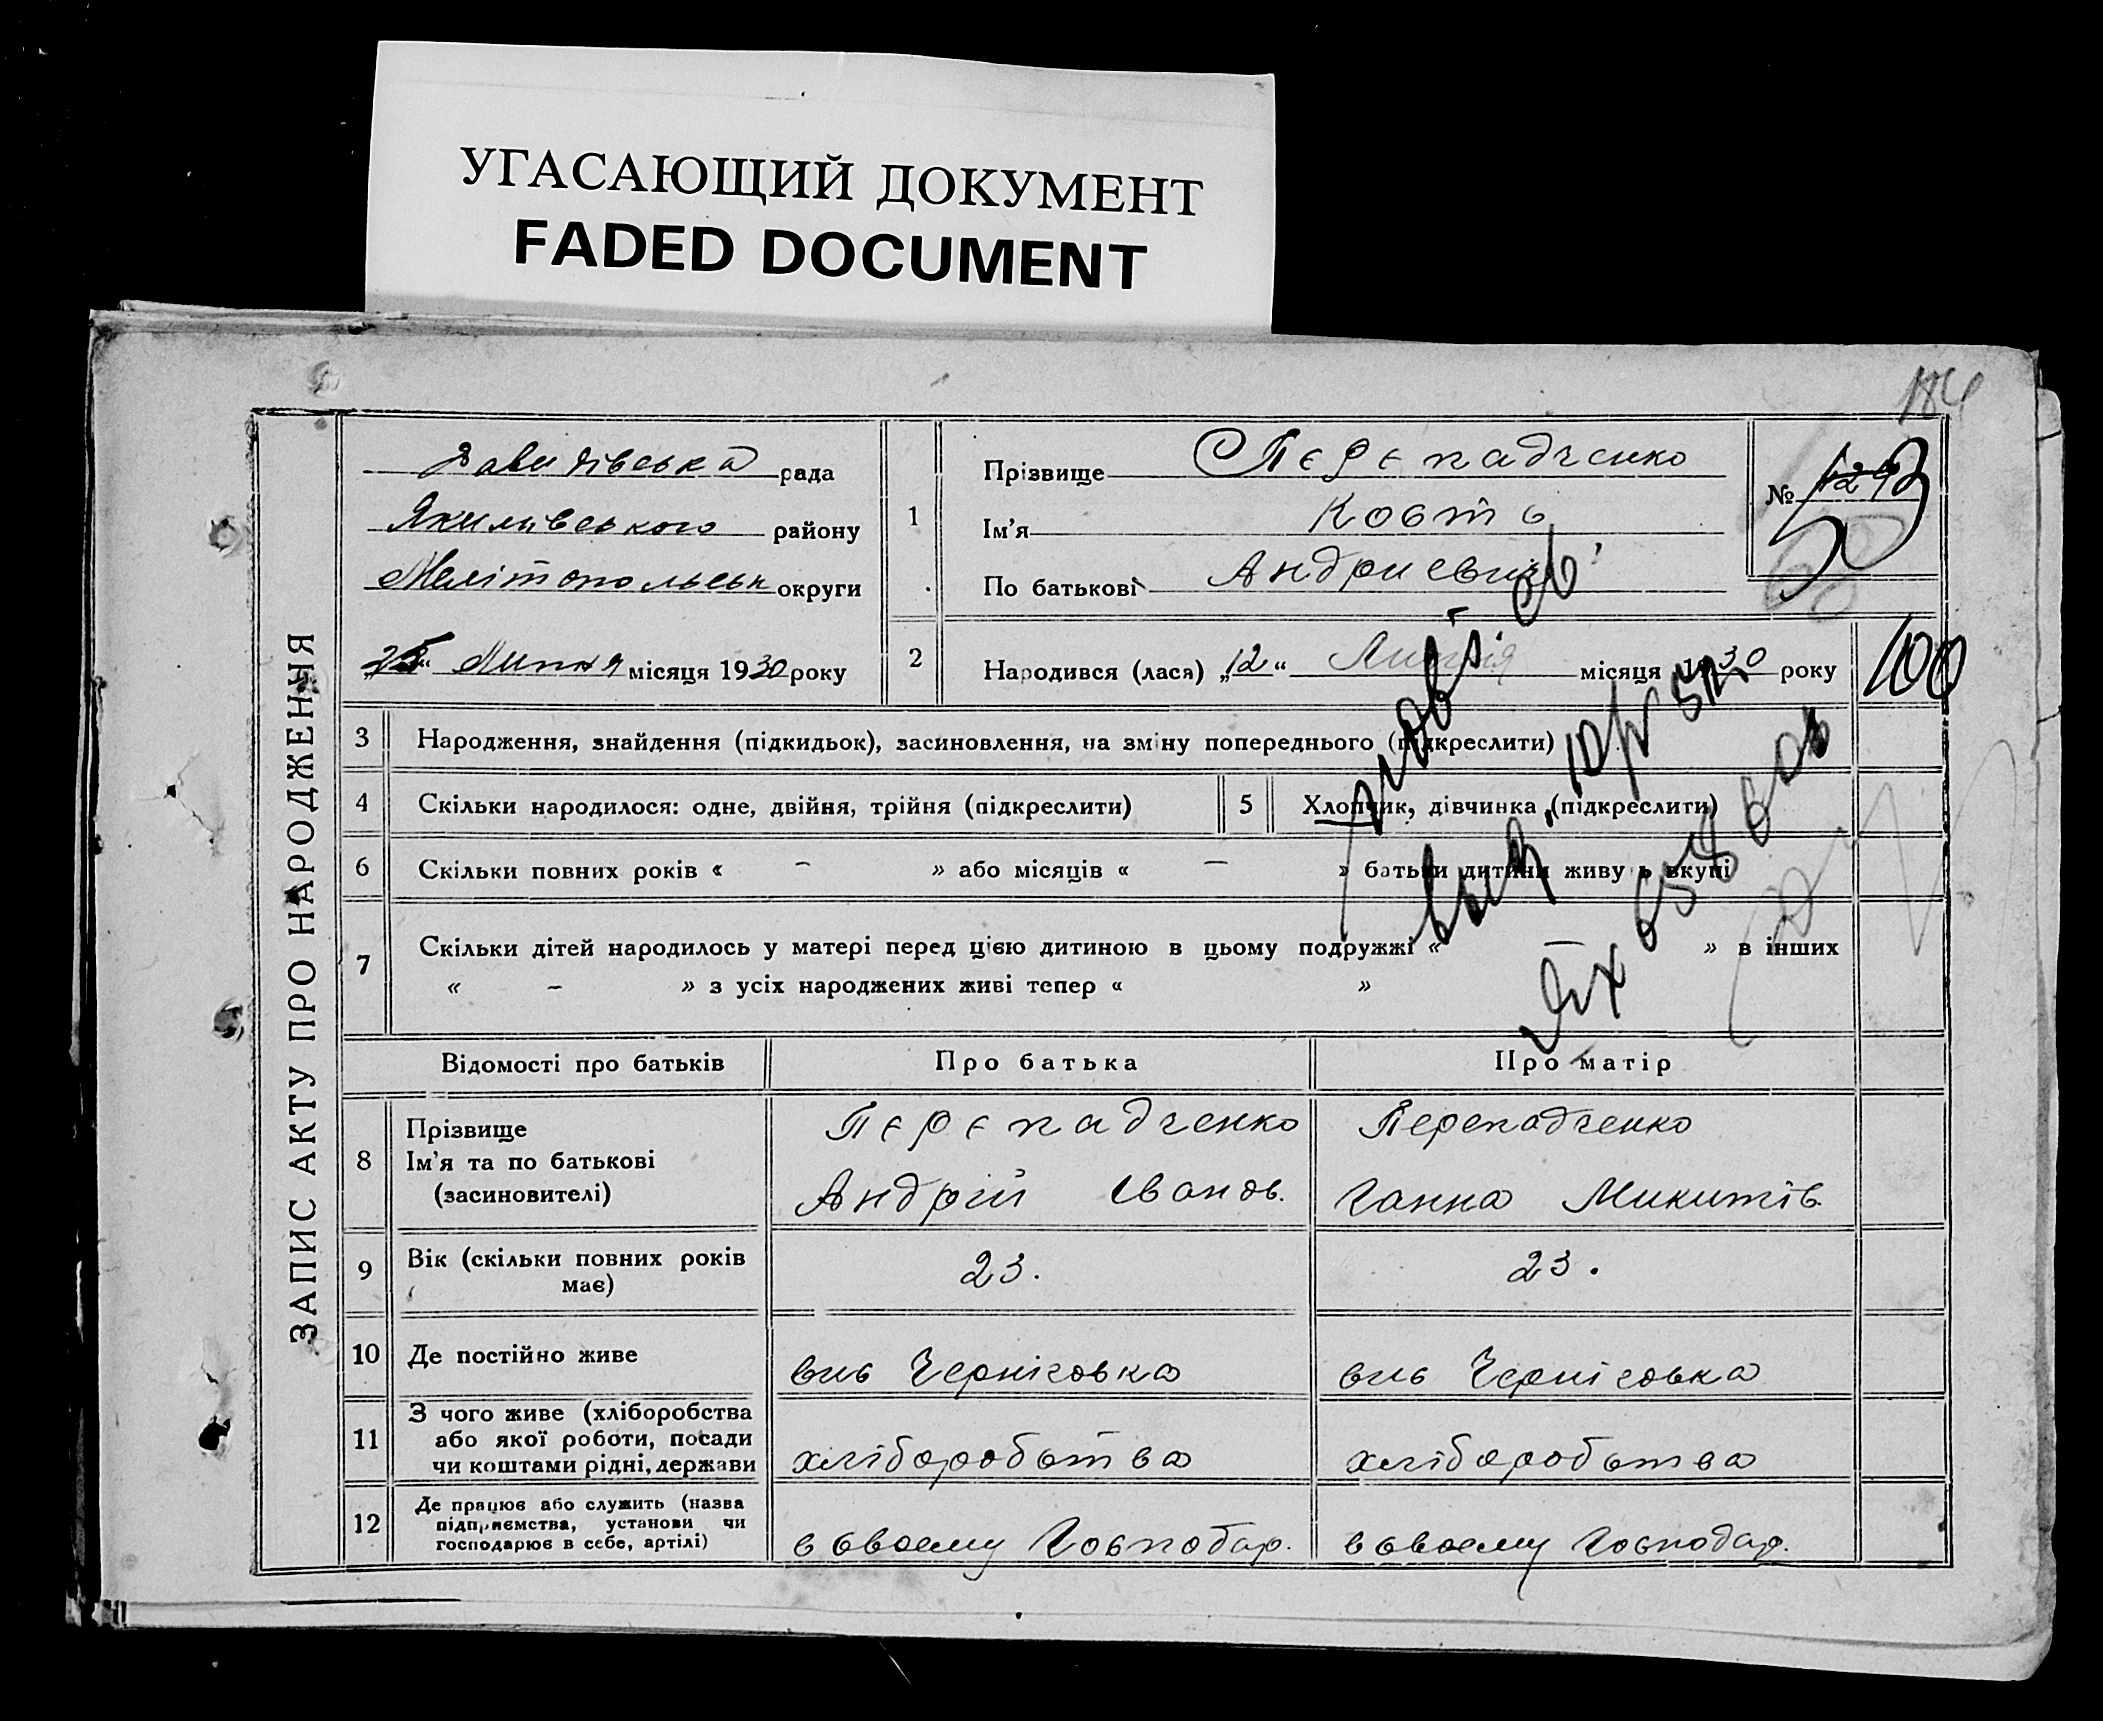 УГАСАЮЩИЙ ДОКУМЕНТ
FADED DOCUMENT
184
ЗАПИС АКТУ ПРО НАРОДЖЕННЯ
Давидівська рада
Якимівського району
Мелітопольськ округи
„25“ Липня місяця 1930 року
1
Прізвище Перепадченко
Ім'я Кость
По батькові Андриевич
№
2
Народився (лася) „12“ Липня місяця 1930 року
100
3 Народження, знайдення (підкидьок), засиновлення, на зміну попереднього (підкреслити)
4 Скільки народилося: одне, двійня, трійня (підкреслити)
5 Хлопчик, дівчинка (підкреслити)
6 Скільки повних років « – » або місяців « – » батьки дитини живуть вкупі
7 Скільки дітей народилось у матері перед цією дитиною в цьому подружжі « – » в інших
« – » з усіх народжених живі тепер « »
Відомості про батьків Про батька Про матір
8 Прізвище
Ім'я та по батькові
(засиновителі)
Перепадченко
Андрій Іванов.
Перепадченко
Ганна Микитів.
9 Вік (скільки повних років
має)
23.
23.
10 Де постійно живе
Чернісовка
Чернісовка
11 З чого живе (хліборобства
або якої роботи, посади
чи коштами рідні, держави
хліборобства
хліборобства
12 Де працює або служить (назва
підприємства, установи чи
господарює в себе, артілі)
в своему Господар.
в своему Господар.